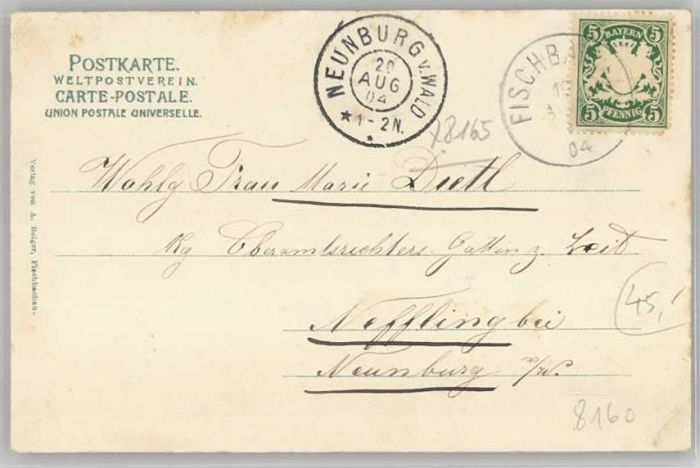 POSTKARTE.
WELTPOSTVEREIN.
CARTE-POSTALE.
UNION POSTALE UNIVERSELLE.
NEUNBURG v. WALD
20
AUG
04
1-2N.
FISCHBA
04
5 BAYERN 5
5 PFENNIG 5
78165
Wohlg Frau Marie Dietl
Kg Oberamtsrichters Gattin z. Zeit
Nefflingbei
Neunburg v/W.
45,
8160
Verlag von A. Reiger, Fischbachau.